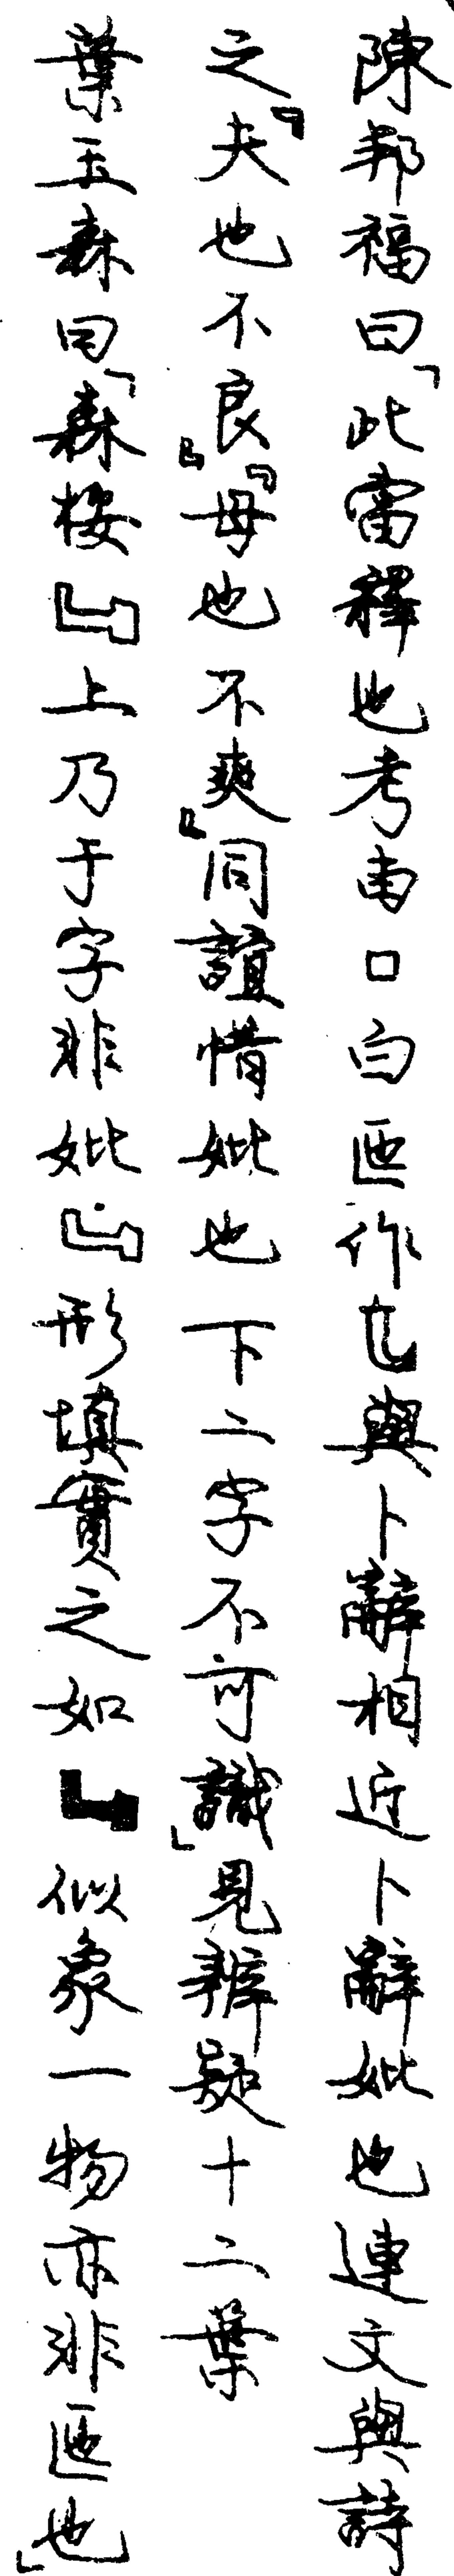 陳邦福曰「此當釋也考南口白匜作也與卜辭相近卜辭妣也連文與詩
之『夫也不良』『母也不爽』同誼惜妣也下二字不可識」見辨疑十二葉
葉玉森曰「森桉上乃于字非妣形填實之如似象一物亦非匜也」